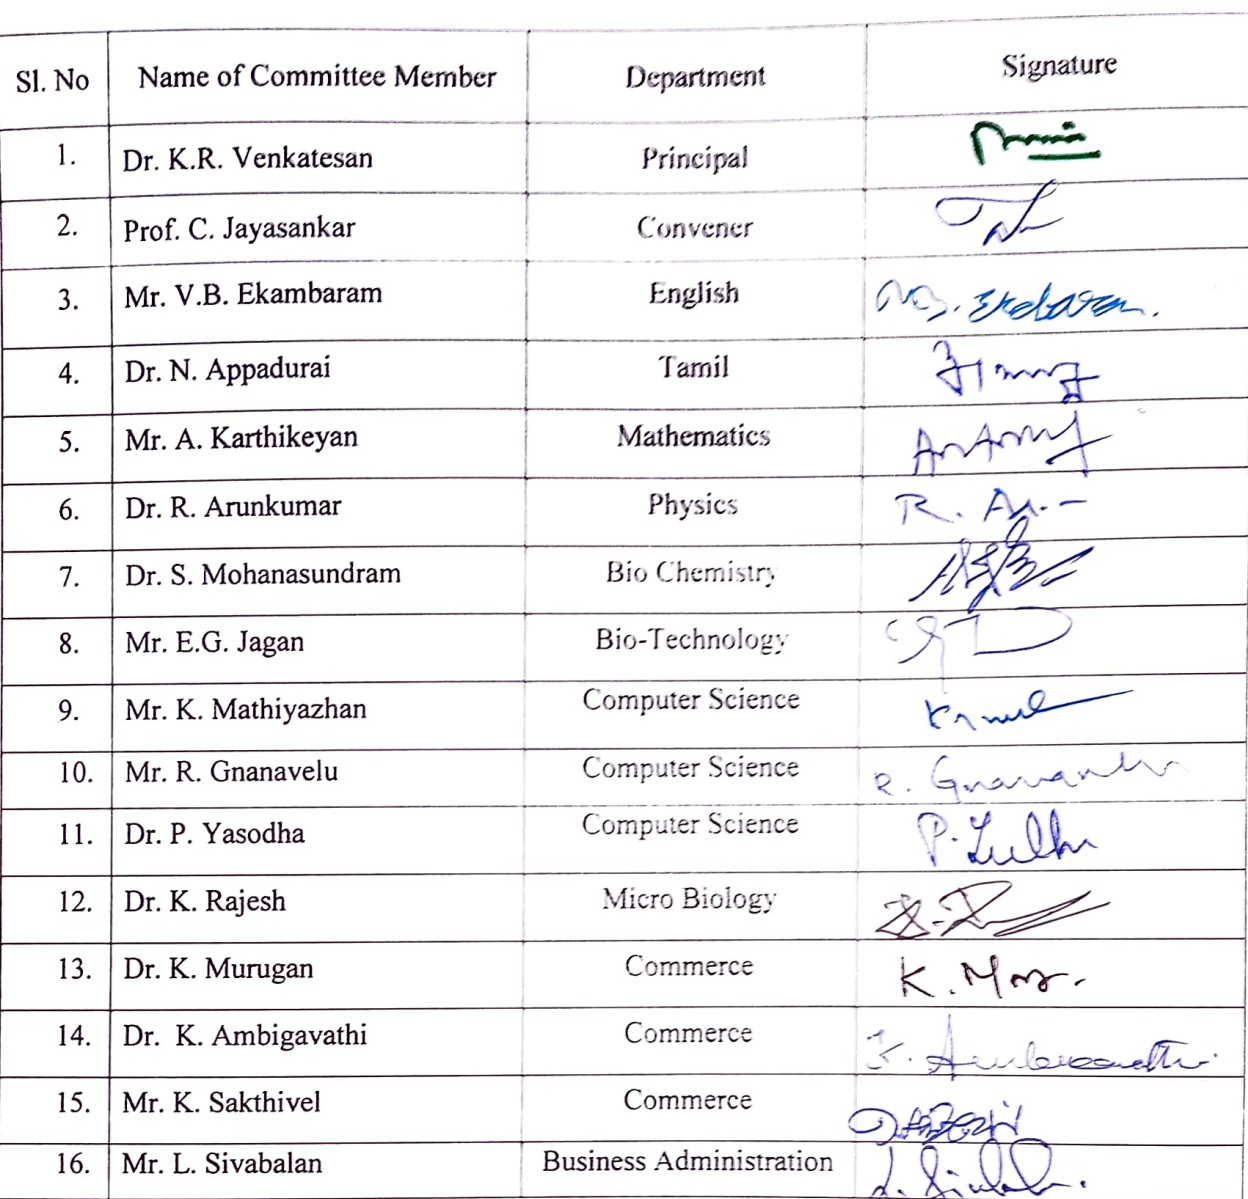 Sl. No Name of Committee Member Department Signature
1. Dr. K.R. Venkatesan Principal
2. Prof. C. Jayasankar Convener
3. Mr. V.B. Ekambaram English
4. Dr. N. Appadurai Tamil
5. Mr. A. Karthikeyan Mathematics
6. Dr. R. Arunkumar Physics
7. Dr. S. Mohanasundram Bio Chemistry
8. Mr. E.G. Jagan Bio-Technology
9. Mr. K. Mathiyazhan Computer Science
10. Mr. R. Gnanavelu Computer Science
11. Dr. P. Yasodha Computer Science
12. Dr. K. Rajesh Micro Biology
13. Dr. K. Murugan Commerce
14. Dr. K. Ambigavathi Commerce
15. Mr. K. Sakthivel Commerce
16. Mr. L. Sivabalan Business Administration